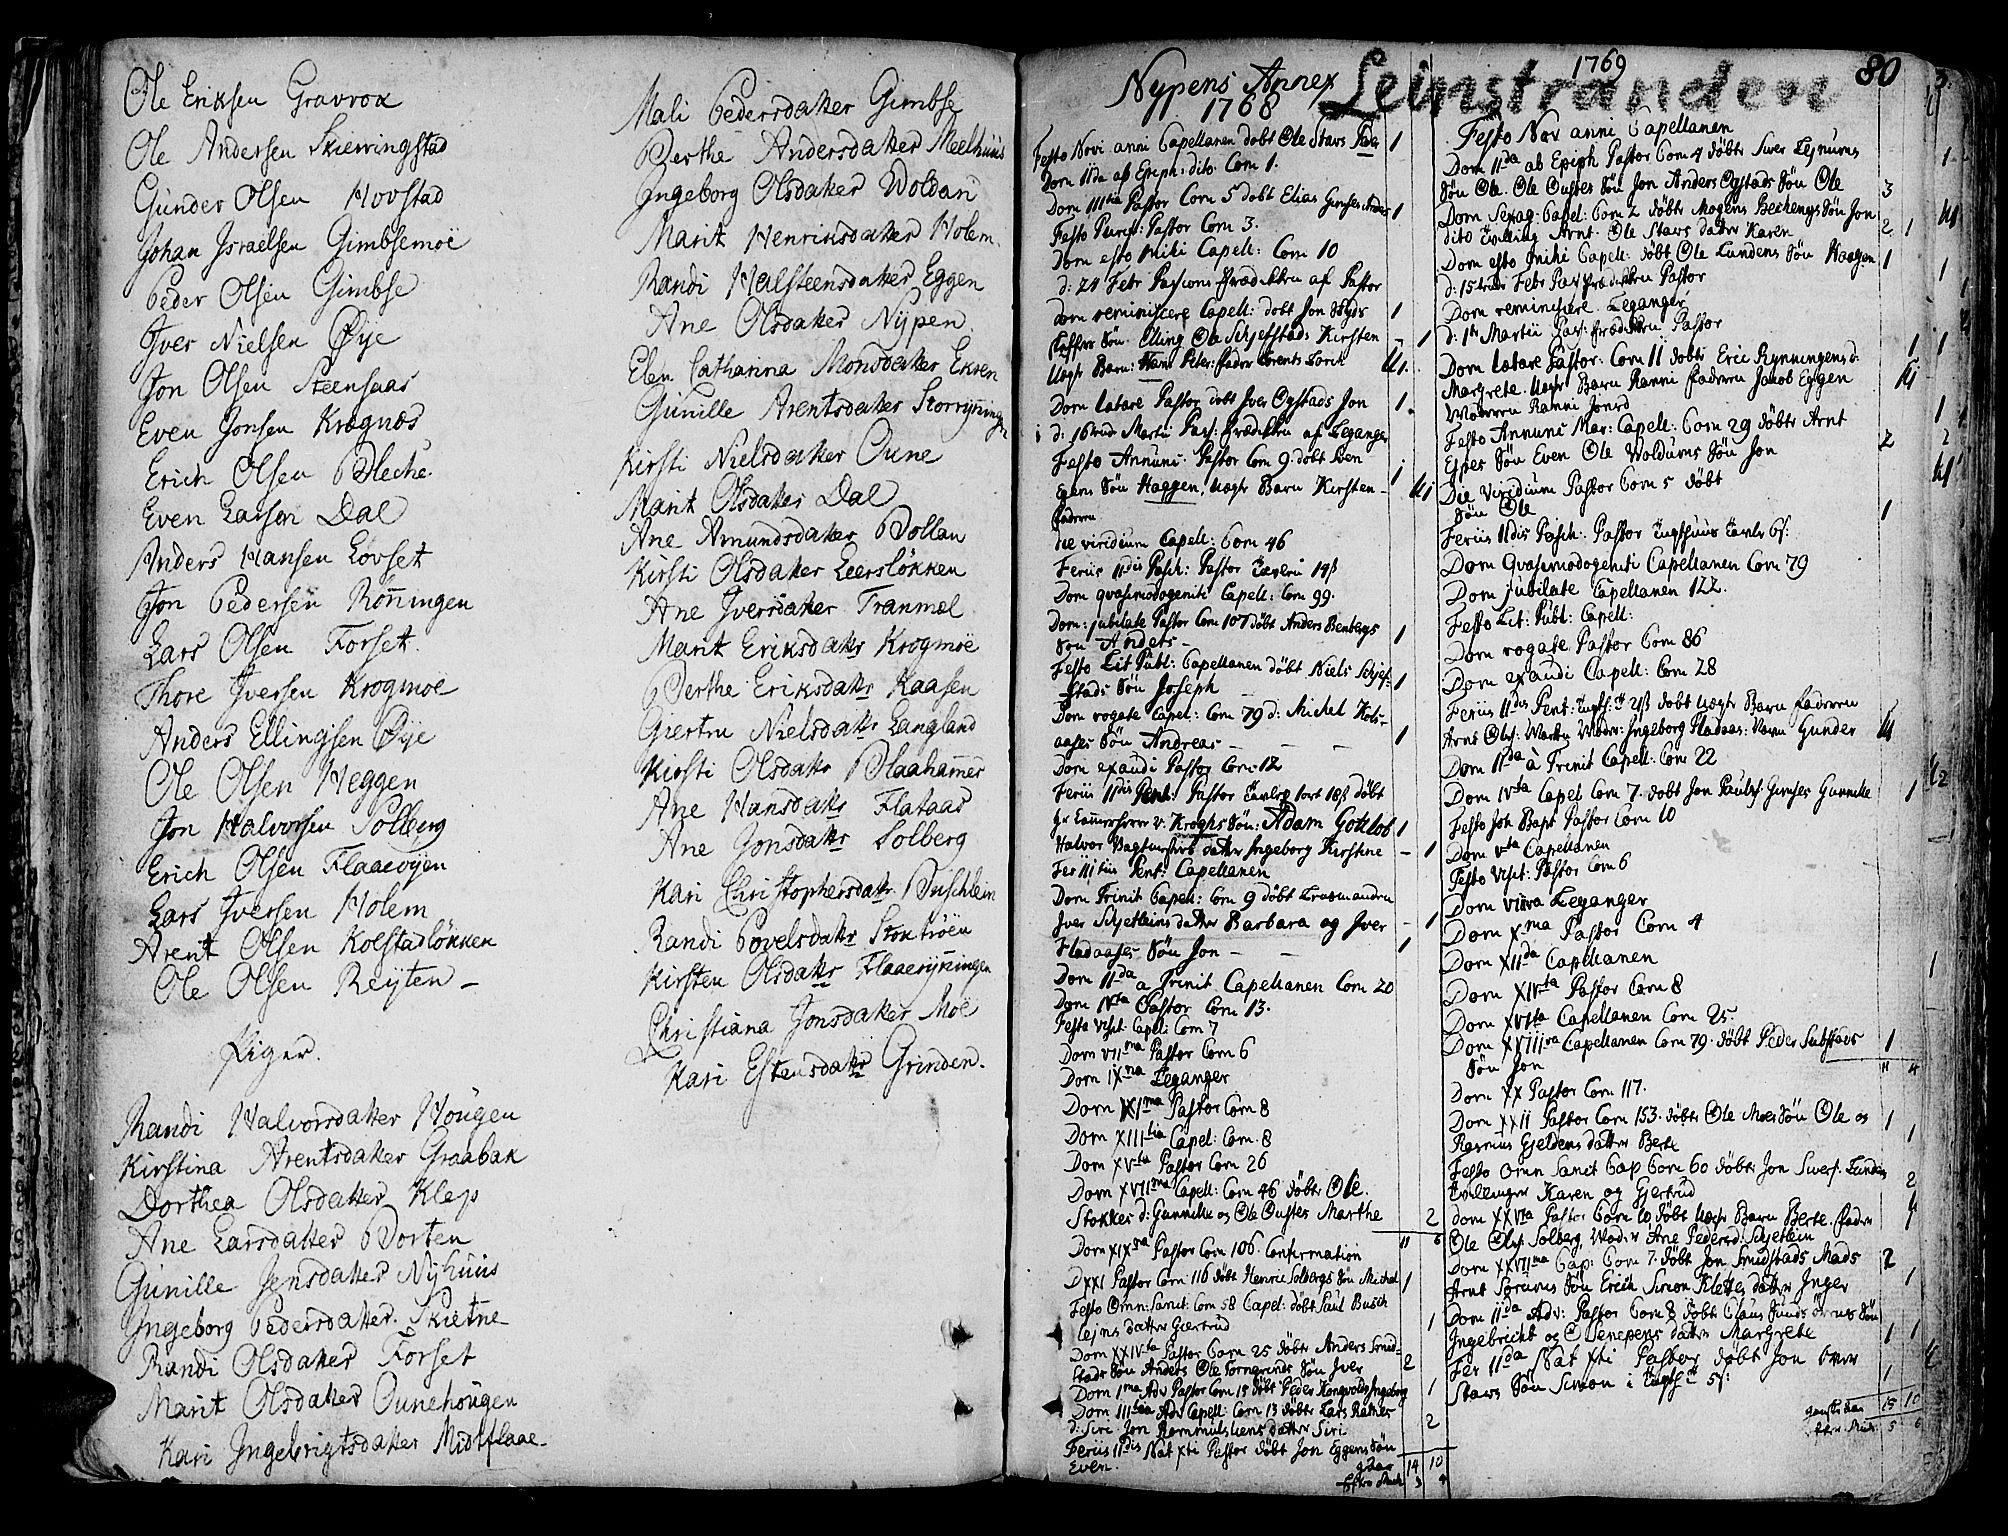 Ole Eriksen Gravrok
Ole Andersen Skierringstad
Gunder Olsen Hovstad
Johan Jsraelsen Gimbsemoe
Peder Olsen Gimbse
Jver Nielsen Øye
Jon Olsen Steensaas
Even Jonsen Krognæs
Erich Olsen Bleche
Even Larsen Dal
Anders Hansen Lovset
Jon Pedersen Rönningen
Lars Olsen Forset
Thore Jversen Krogmoe
Anders Ellingsen Øye
Ole Olsen Heggen
Jon Halvorsen Solberg
Erich Olsen Flaaevijen
Lars Jversen Holem
Arent Olsen Kolstadløkken
Ole Olsen Reijten
Piger.
Randi Halvorsdatter Hougen
Kirstina Arentsdatter Graabak
Dorthea Olsdatter Kleps
Ane Larsdatter Borten
Gunille Jensdatter Nijhuus
Jngeborg Pedersdatter Skietne
Randi Olsdatter Forset
Marit Olsdatter Ounehougen
Kari Jngebrigtsdatter Midtflaae
Mali Pedersdatter Gimbse
Berthe Andersdatter Meelhuus
Jngeborg Olsdatter Woldan
Marit Henriksdatter Holem
Randi Halsteensdatter Eggen
Ane Olsdatter Nypen
Elen Catharina Monsdatter Ekren
Gunille Arentsdatter Storrynningen
Kirsti Nielsdatter Oune
Marit Olsdatter Dal
Ane Amundsdatter Bollan
Kirsti Olsdatter Leersløkken
Ane Jversdatter Tranmæl
Marit Eriksdatr Krogmoe
Berthe Eriksdatr Kaasen
Giertru Nielsdatr Langland
Kirsti Olsdatr Blaahammer
Ane Hansdatr Flataas
Ane Jonsdatr Solberg
Kari Christophersdatr Buschlein
Randi Povelsdatr Stoktröen
Kirsten Olsdatr Flaaerijnningen
Christiana Jonsdatter Moe
Kari Estensdatr Grinden.
Nypens Annex
1768
Festo Novi anni Capellanen dobt Ole Stavs 1
Dom IIda af Epiph: dito Com 1.
Dom IIItia Pastor Com 5 dobt Elias 1
Festo Purif: Pastor Com 3.
Dom esto mihi Capell: Com 10
d: 24 Febr Passions Prædiken af Pastor
Dom reminiscere Capell: dobt Jon 1
Sön Elling Ole Schjefstads Kirsten 1
Uægte Barn: Hans Peter: Fader Lorents
Dom lætare Pastor dobt Jver Øgstads Jon 1
d: 16 Martii Pass: Prædiken af Leganger
Festo Annunc: Pastor Com 9. dobt
Sön Haagen, Uægte Barn Kirsten
die viridium Capell: Com 46
Feriis IIdis Pasch: Pastor
Dom qvasimodogeniti Capell: Com 99.
Dom: jubilate Pastor Com 107 döbt Anders Benbergs
Sön Anders 1
Festo Lit Publ: Capellanen döbt Niels Schjef-
stads Sön Joseph 1
Dom rogate Capel: Com 79 d: Michel Kols-
aases Sön Andreas 1
Dom exaudi Pastor Com 12
Feriis IIdis Pent: Pastor
v: Kroghs Sön: Adam Gotlob 1
Halvor datter Jngeborg Kirstine 1
Fer IIItiis Pent: Capellanen
Dom Trinit Capell: Com 9 döbt
Jver Schjetleins datter Barbara og Jver 1
Fladaases Sön Jon 1
Dom IIda a Trinit Capellanen Com 20
Dom IVta Pastor Com 13.
Festo Visit: Capel: Com 7
Dom VIIma Pastor Com 6
Dom IXna Leganger
Dom XIma Pastor Com 8
Dom XIIItia Capel: Com. 8
Dom XVta Pastor Com 26
Dom XVIIma Capel: Com 46 döbt Ole
Stokkes d: Gunnille og Ole Oustes Marthe 2
Dom XIXna Pastor Com 106. Confirmation
D XXI Pastor Com 116 döbt Henric Solbergs Sön Michel 1
Festo Omn: Sanct: Com 58 Capel: döbt Paul Busch
lejns datter Giertrud 1
Dom XXIVta Pastor Com 25 döbt Anders Smid-
stads Sön Anders Ole Forngrinds Sön Jver 2
Dom 1ma Adv Pastor Com 15 döbt Peder Jngeborg 1
Dom IIItia Adv Capell: Com 13 döbt Lars Rathes
d: Siri Jon Rommulsliens datter Siri 2
Feriis IIdis Nat xti Pastor döbt Jon Eggens Sön
Even. 14 10
Leinstranden
1769
80
Festo Nov anni Capellanen
Dom IIda ab Epiph Pastor Com 4 döbt
Sön Ole. Ole Oustes Sön Jon Anders Øgstads Sön Ole 3
Dom Sexag: Capel: Com 2 döbt Mogens Sön Jon
dito Tvilling Arnt. Ole Stavs datter Karen 2 1
Dom esto mihi Capell: döbt Ole Lundens Sön Haagen 1
d: 15 Febr Pass Prædiken Pastor
Dom reminiscere Leganger
d: 1te Martii Pass: Prædiken Pastor
Dom lætare Pastor: Com 11 döbt Eric Rynningens d:
Margrete Uægte Barn Ranni Faderen Jakob Eggen
Moderen Ranni
Festo Annunc Mar: Capell: Com 29 döbt Arnt
Sön Even Ole Sön Jon 2
Die Viridium Pastor Com 5 döbt
Sön Ole 1
Feriis IIdis Pasch: Pastor
Dom Qvasimodogeniti Capellanen Com 79
Dom jubilate Capellanen 122.
Festo Lit: Publ: Capell:
Dom rogate Pastor Com 86
Dom exaudi Capell: Com 28
Feriis IIdis Pent: döbt Uægte Barn Faderen
Arnt Jngeborg Fladaas: Gunder
Dom IIda à Trinit Capell: Com 22
Dom IVta Capel Com 7. döbt Jon Gunnille 1
Festo Joh Bapt Pastor Com 10
Dom Vta Capellanen
Festo Visit: Pastor Com 6
Dom VIIIva Leganger
Dom Xma Pastor Com 4
Dom XIIda Capellanen
Dom XIVta Pastor Com 8
Dom XVIta Capellanen Com 25
Dom XVIIIva Capellanen Com 79. döbt Peder Sutstads 1
Sön Jon
Dom XX Pastor Com 117.
Dom XXII Pastor Com 153. döbt Ole Moes Sön Ole og 1
Rasmus Gjeldens datter Berte 1
Festo Omn Sanct Cap Com 60 döbt Jon Sivers: Lundens
Tvillinger Karen og Gjertrud 2
Dom XXVta Pastor Com 10 döbt Uægte Barn Berte. Fader
Ole Ols: Solberg, Moder Ane Pedersd: Schjetlein
Dom XXVIIma Cap: Com 7. döbt Jon Smidstads Mads 2
Arnt Sön Erich Simon Klettes datter Jnger 1
Dom IIda Adv: Pastor Com 8 döbt Claus Sön
Jngebricht og datter Margrete 1 1
Fer IIda Nat xti Pastor döbt Jon
Stavs Sön Simon 1
15 10
5 6